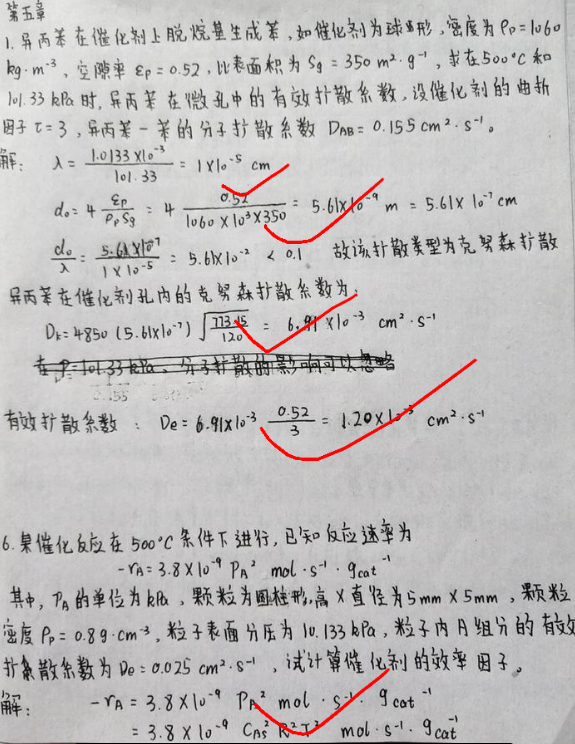 第五章
1. 异丙苯在催化剂上脱烷基生成苯,如催化剂为球形,密度为ρp=1060
kg·m⁻³,空隙率 εp=0.52,比表面积为 Sg=350 m²·g⁻¹,求在500°C和
101.33 kPa时,异丙苯在微孔中的有效扩散系数,设催化剂的曲折
因子τ=3,异丙苯—苯的分子扩散系数 DAB=0.155 cm²·s⁻¹。
解: λ = 1.0133×10⁻³ / 101.33 = 1×10⁻⁵ cm
d₀ = 4 εp / ρpSg = 4 0.52 / 1060×10³×350 = 5.61×10⁻⁹ m = 5.61×10⁻⁷ cm
d₀/λ = 5.61×10⁻⁷ / 1×10⁻⁵ = 5.61×10⁻² < 0.1 故该扩散类型为克努森扩散
异丙苯在催化剂孔内的克努森扩散系数为:
Dk=4850 (5.61×10⁻⁷) √(773.15/120) = 6.91×10⁻³ cm²·s⁻¹
在P=101.33 kPa,分子扩散的影响可以忽略
有效扩散系数: De = 6.91×10⁻³ 0.52/3 = 1.20×10⁻³ cm²·s⁻¹
6. 某催化反应在500°C条件下进行,已知反应速率为
-rA = 3.8×10⁻⁹ PA² mol·s⁻¹·gcat⁻¹
其中,PA的单位为kPa,颗粒为圆柱形,高×直径为5mm×5mm,颗粒
密度ρp=0.8g·cm⁻³,粒子表面分压为10.133kPa,粒子内A组分的有效
扩散系数为De=0.025 cm²·s⁻¹,试计算催化剂的效率因子。
解: -rA = 3.8×10⁻⁹ PA² mol·s⁻¹·gcat⁻¹
= 3.8×10⁻⁹ CAs² R²T² mol·s⁻¹·gcat⁻¹